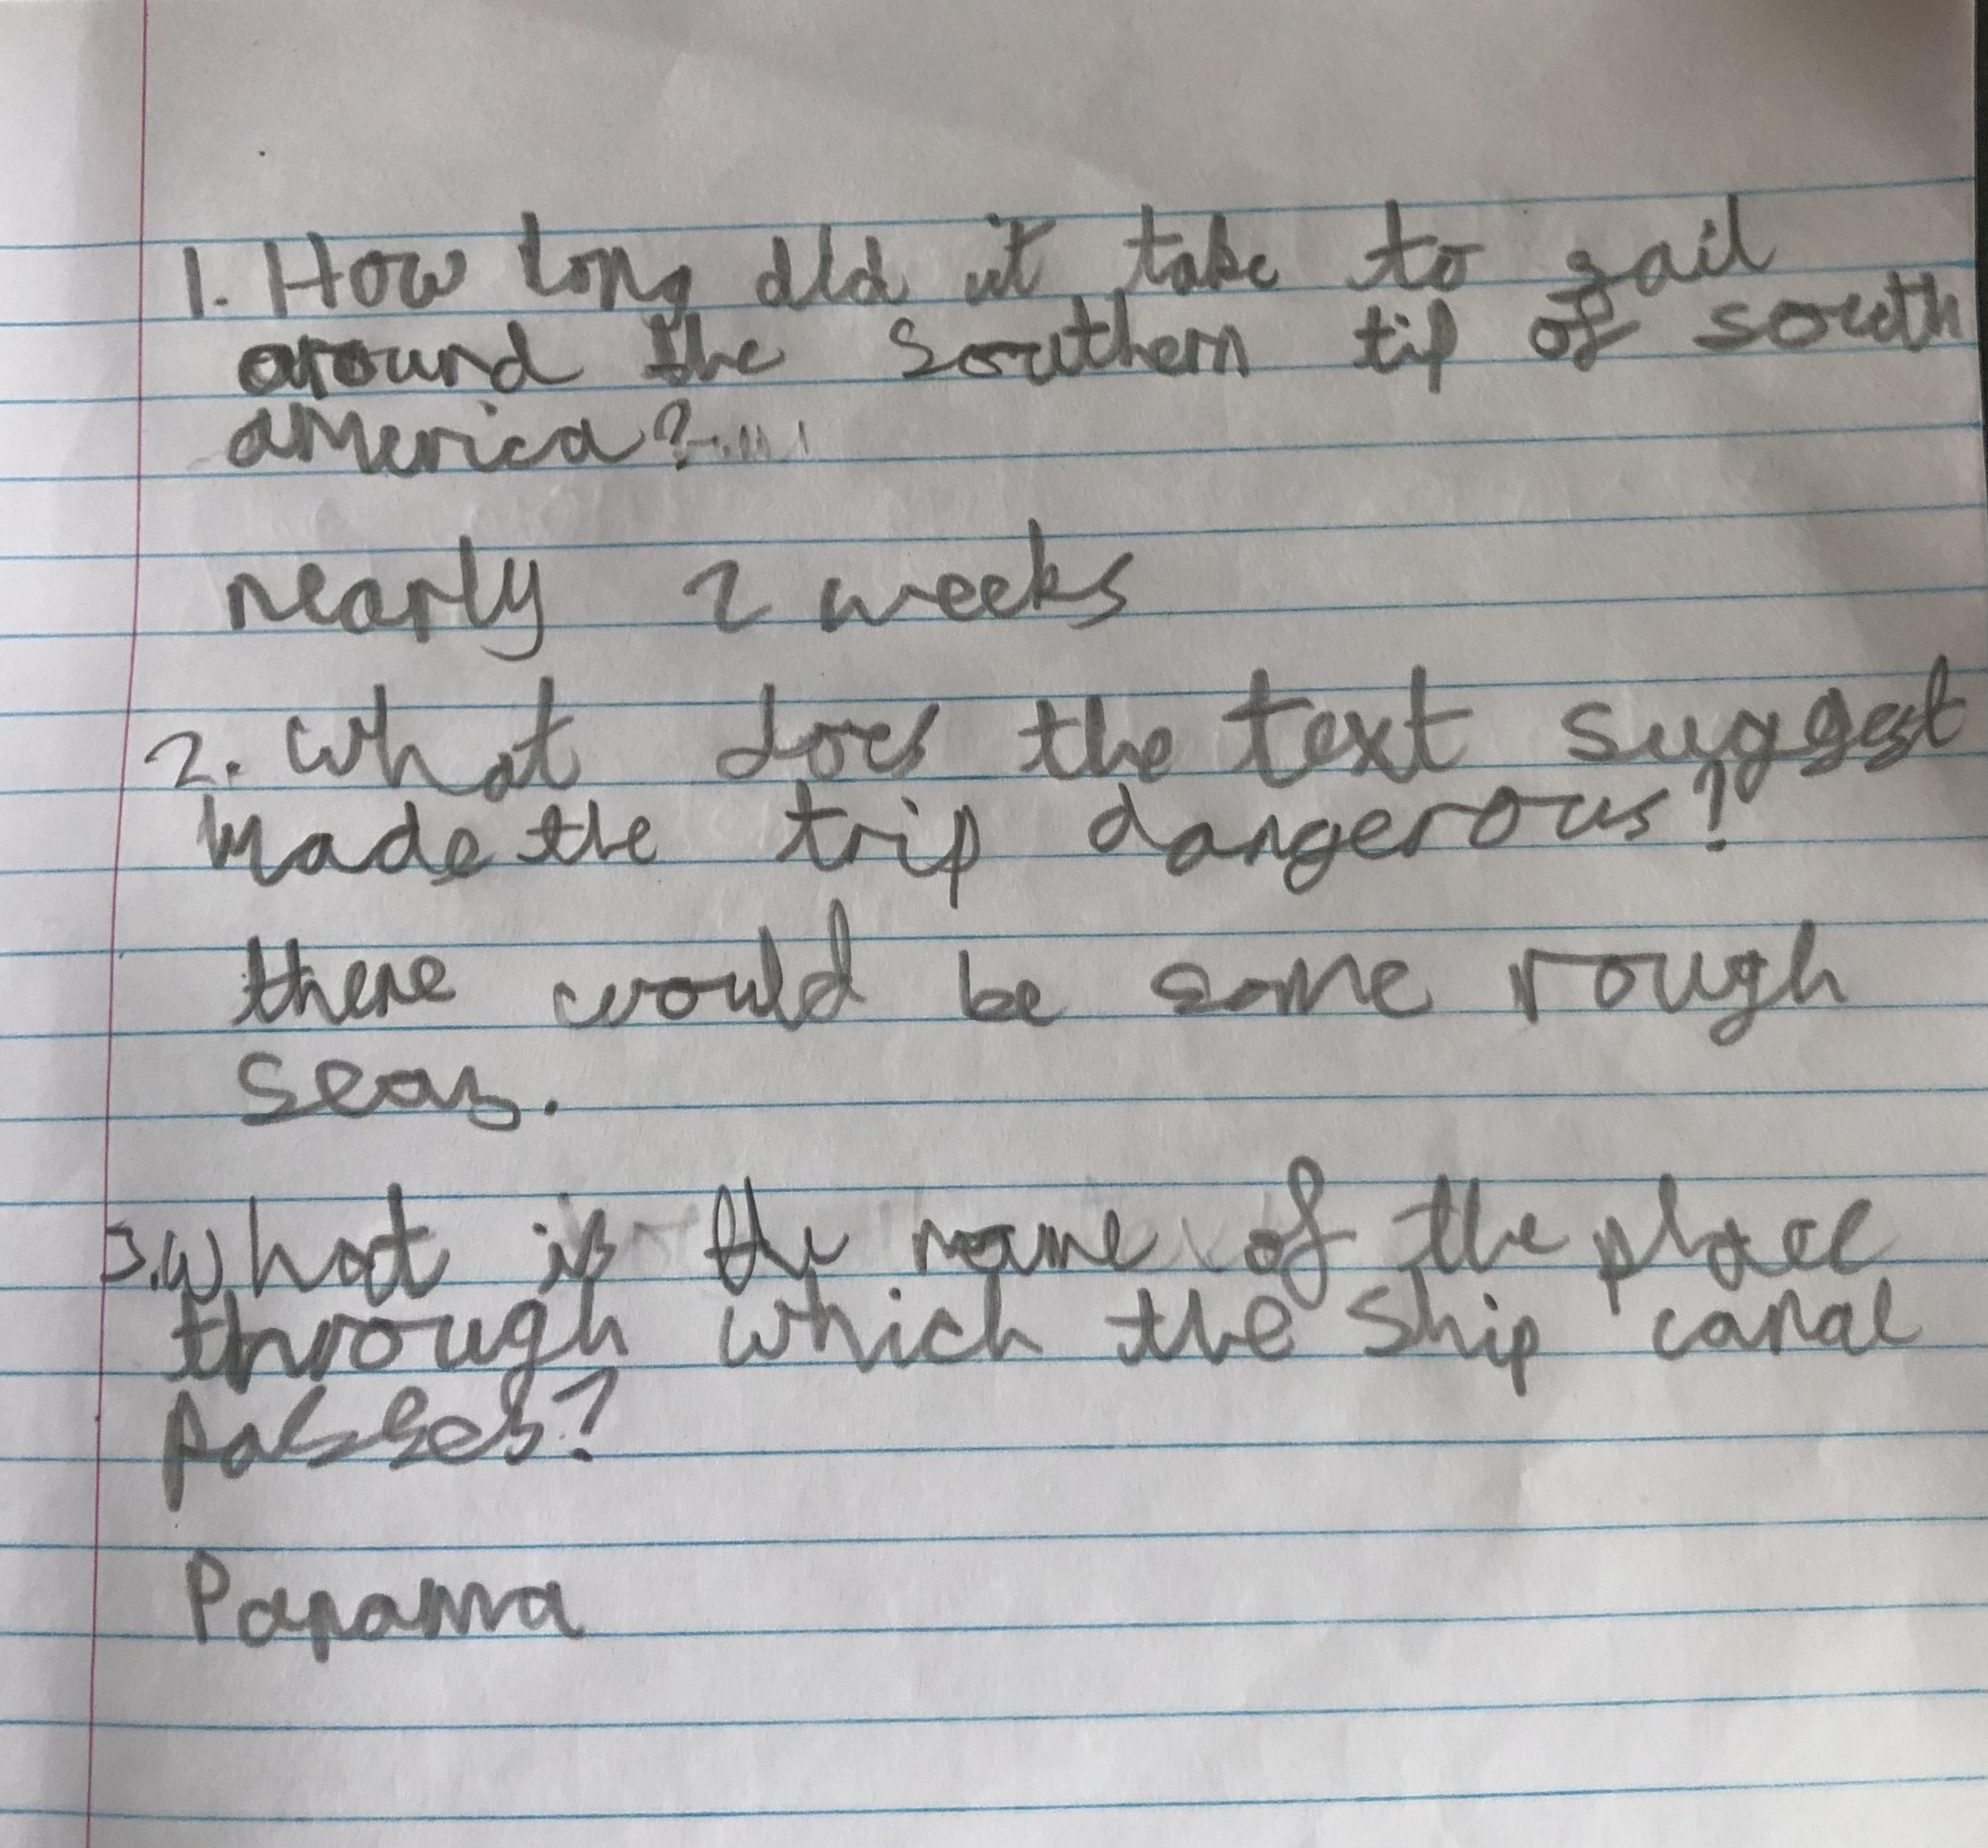 1. How long did it take to sail
around the southern tip of south
america?
nearly 2 weeks
2. What does the text suggest
made the trip dangerous?
there would be some rough
seas.
3. What is the name of the place
through which the ship canal
passes?
Panama